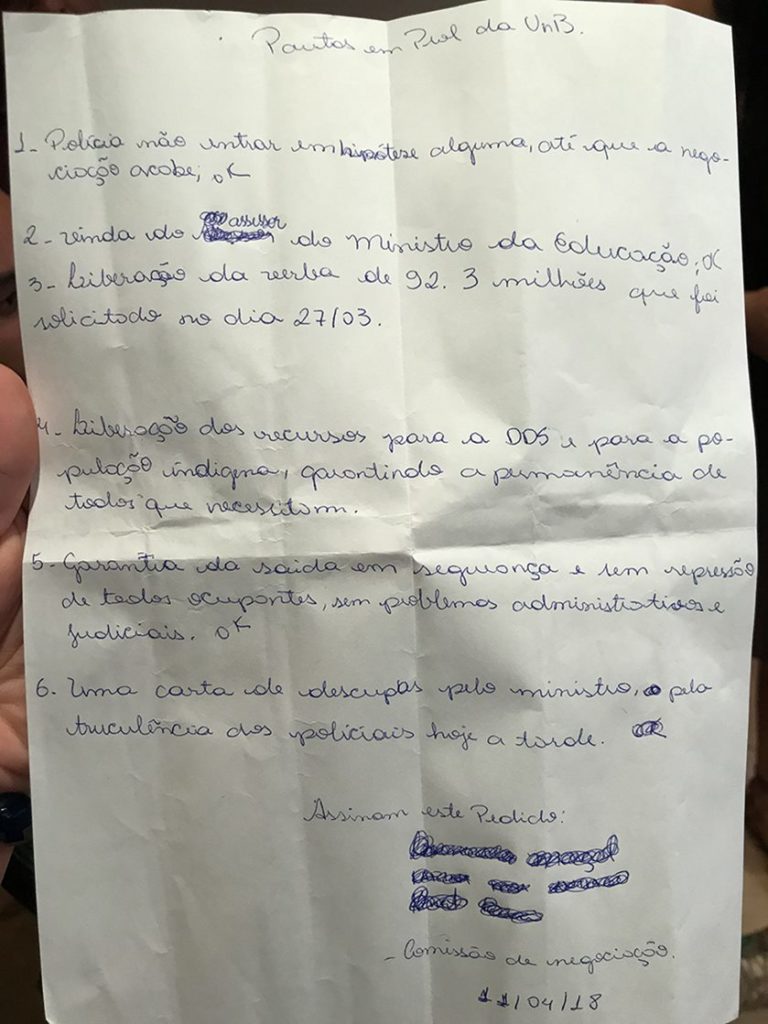 Pautas em Prol da UnB.
1- Polícia não entrar em hipótese alguma, até que a nego-
ciação acabe; ok
assessor
2- vinda do do Ministro da Educação; ok
3- Liberação da verba de 92.3 milhões que foi
solicitado no dia 27/03.
4- Liberação dos recursos para a DDS e para a po-
pulação indígena, garantindo a permanência de
todos que necessitam.
5- Garantia da saída em segurança e sem repressão
de todos ocupantes, sem problemas administrativos e
judiciais. ok
6. Uma carta de desculpas pelo ministro, pela
truculência dos policiais hoje a tarde.
Assinam este Pedido:
- Comissão de negociação.
11/04/18